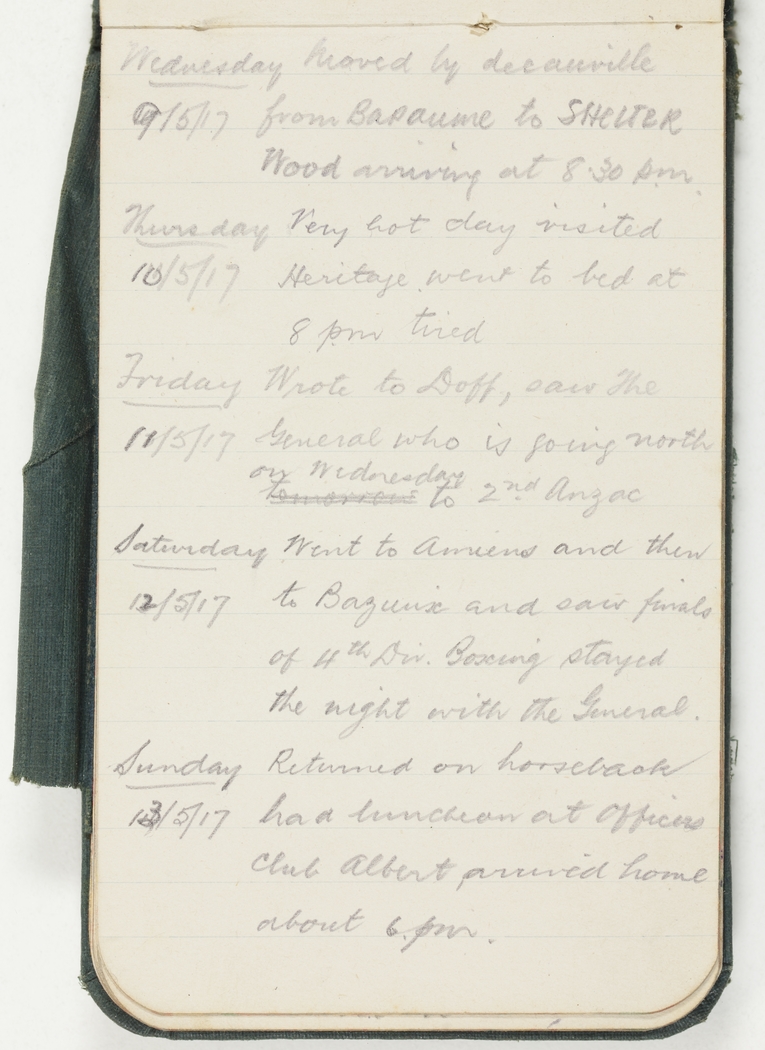 Wednesday Moved by decauville
9/5/17 from BAPAUME to SHELTER
Wood arriving at 8.30 pm.
Thursday Very hot day visited
10/5/17 Heritage went to bed at
8 pm tired
Friday Wrote to Doff, saw The
11/5/17 General who is going north
on Wednesday
tomorrow to 2nd Anzac
Saturday Went to Amiens and then
12/5/17 to Bazuix and saw finals
of 4th Div. Boxing stayed
the night with the General.
Sunday Returned on horseback
13/5/17 had luncheon at Officers
Club Albert, arrived home
about 6 pm.